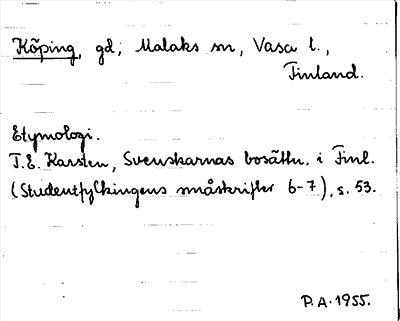 Köping, gd, Malaks sn, Vasa l.,
Finland.
Etymologi.
T.E. Karsten, Svenskarnas bosättn. i Finl.
(Studentfylkingens småskrifter 6-7), s. 53.
P.A. 1955.